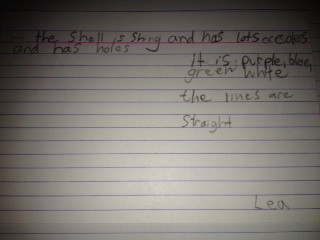 - the Shell is Shing and has lots creales
and has holes
it is purple, bloe,
green white
the lines are
Straight
Lea